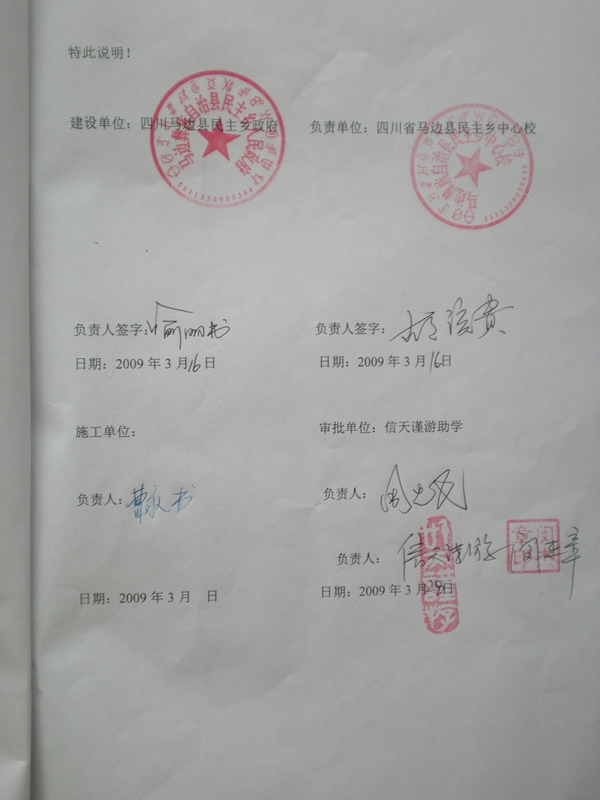 特此说明！
建设单位：四川马边县民主乡政府
负责单位：四川省马边县民主乡中心校
负责人签字：
负责人签字：
日期：2009 年 3 月 16 日
日期：2009 年 3 月 16 日
施工单位：
审批单位：信天谨游助学
负责人：
负责人：
负责人：信天谨游
日期：2009 年 3 月 日
日期：2009 年 3 月 29 日